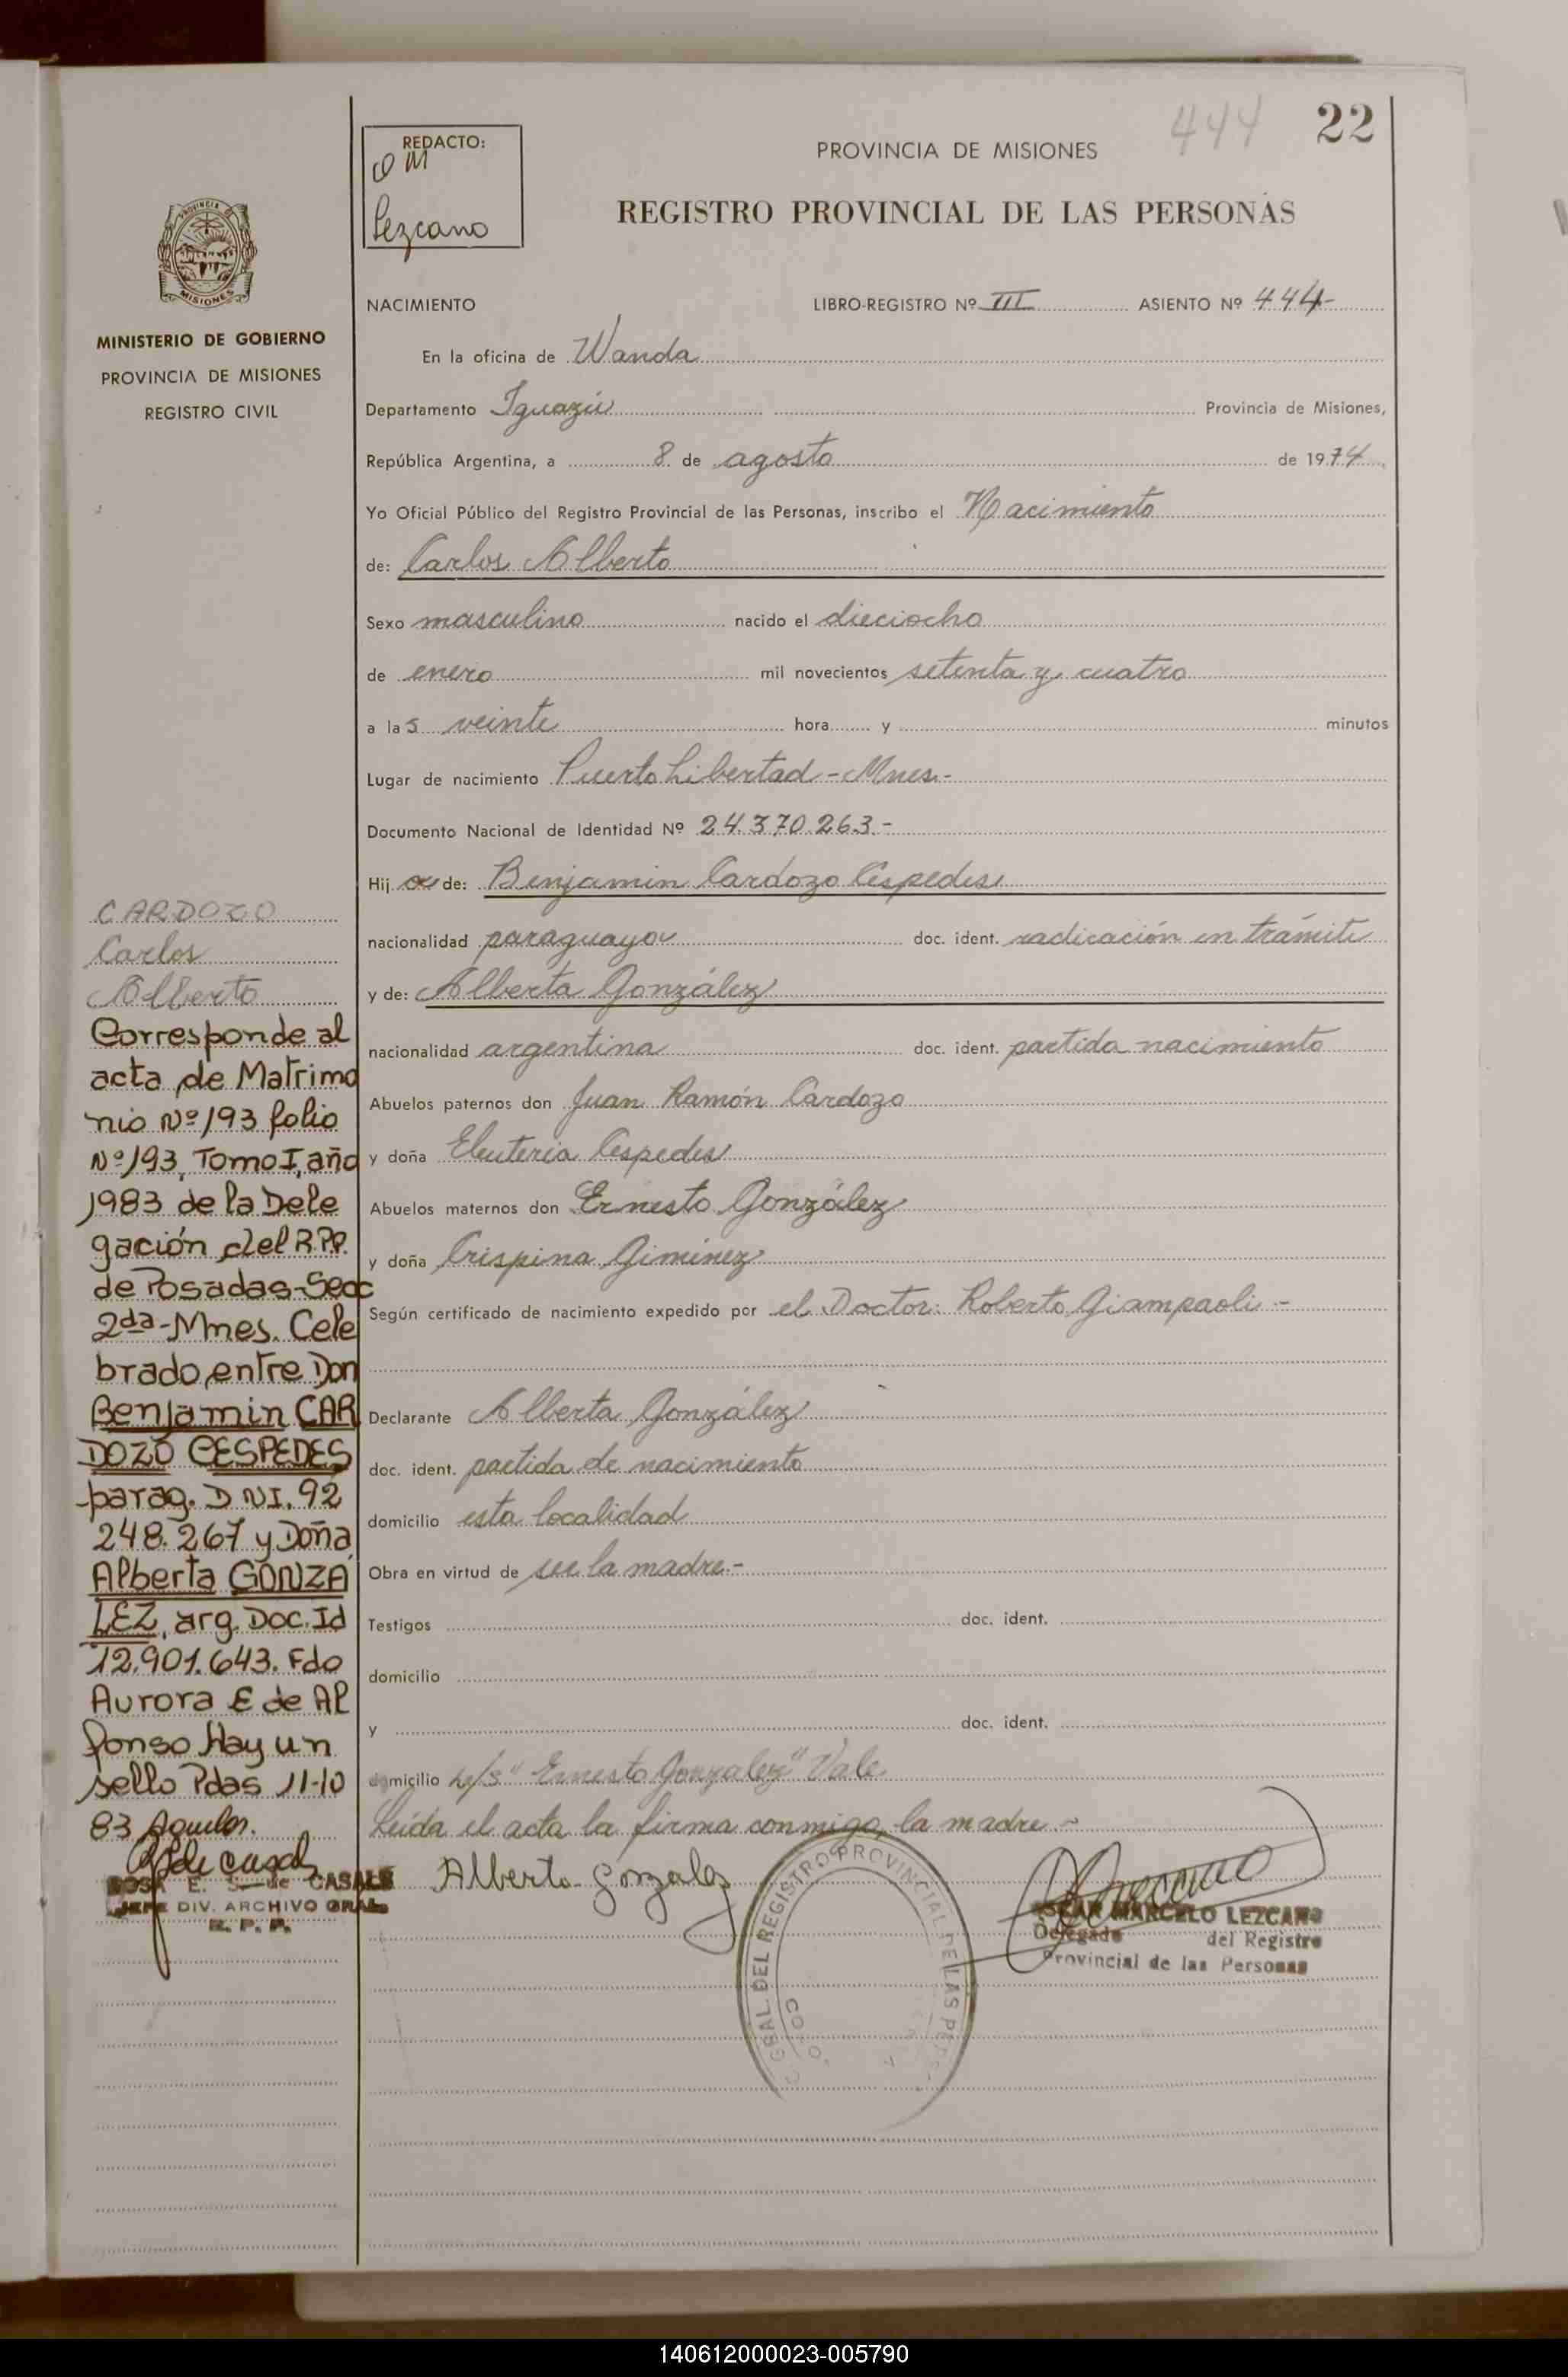 444
22
REDACTO:
OM
Lezcano
PROVINCIA DE MISIONES
REGISTRO PROVINCIAL DE LAS PERSONAS
PROVINCIA DE
MISIONES
MINISTERIO DE GOBIERNO
PROVINCIA DE MISIONES
REGISTRO CIVIL
NACIMIENTO LIBRO-REGISTRO Nº III ASIENTO Nº 444-
En la oficina de Wanda
Departamento Iguazú Provincia de Misiones,
República Argentina, a 8 de agosto de 1974
Yo Oficial Público del Registro Provincial de las Personas, inscribo el Nacimiento
de: Carlos Alberto
Sexo masculino nacido el dieciocho
de enero mil novecientos setenta y cuatro
a las veinte hora y minutos
Lugar de nacimiento Puerto Libertad - Mnes.-
Documento Nacional de Identidad Nº 24.370.263-
Hijo de: Benjamin Cardozo Cespedes
nacionalidad paraguaya doc. ident. radicación en trámite
y de: Alberta González
nacionalidad argentina doc. ident. partida nacimiento
Abuelos paternos don Juan Ramón Cardozo
y doña Eleuteria Cespedes
Abuelos maternos don Ernesto González
y doña Crispina Giminez
Según certificado de nacimiento expedido por el Doctor: Roberto Giampaoli -
Declarante Alberta González
doc. ident. partida de nacimiento
domicilio esta localidad
Obra en virtud de ser la madre.-
Testigos doc. ident.
domicilio
y doc. ident.
domicilio s/s "Ernesto Gonzalez" Vale
Leída el acta la firma conmigo, la madre -
Alberta Gonzalez
CARDOZO
Carlos
Alberto
Corresponde al
acta de Matrimo
nio Nº 193 folio
Nº 193, Tomo I, año
1983 de la Dele
gación del R.P.P.
de Posadas-Secc
2da-Mnes. Cele
brado entre Don
Benjamin CAR
DOZO CESPEDES
parag. DNI. 92
248.267 y Doña
Alberta GONZA
LEZ, arg. Doc. Id
12.901.643. Fdo
Aurora E de Al
fonso Hay un
sello Pdas 11-10
83
ROSA E. S. de CASALS
JEFE DIV. ARCHIVO GRAL.
R. P. P.
GRAL. DEL REGISTRO PROVINCIAL DE LAS PERS
OSCAR MARCELO LEZCANO
Delegado del Registro
Provincial de las Personas
140612000023-005790